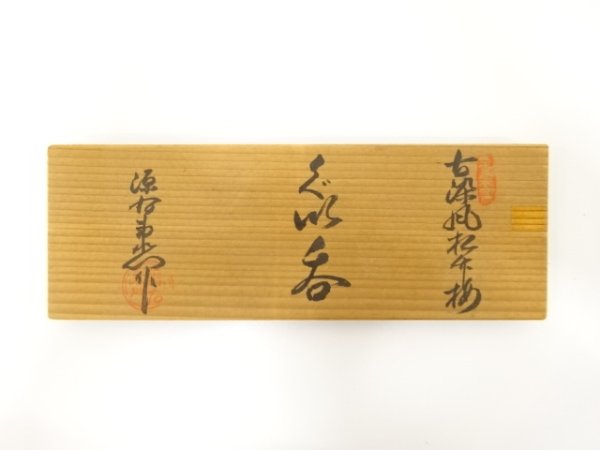 古染風松竹梅
ぐい呑
源右衛門作